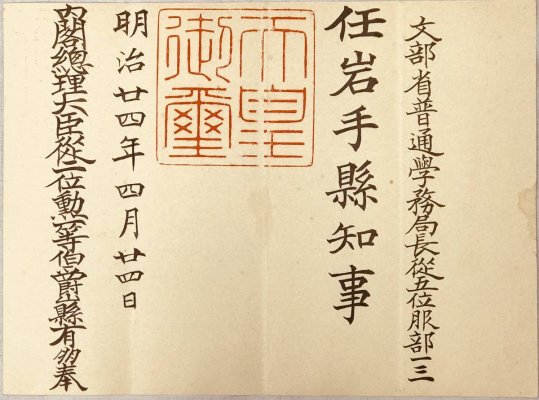 文部省普通學務局長從五位服部一三
任岩手縣知事
天皇
御璽
明治廿四年四月廿四日
内閣總理大臣從二位勳一等伯爵山縣有朋奉